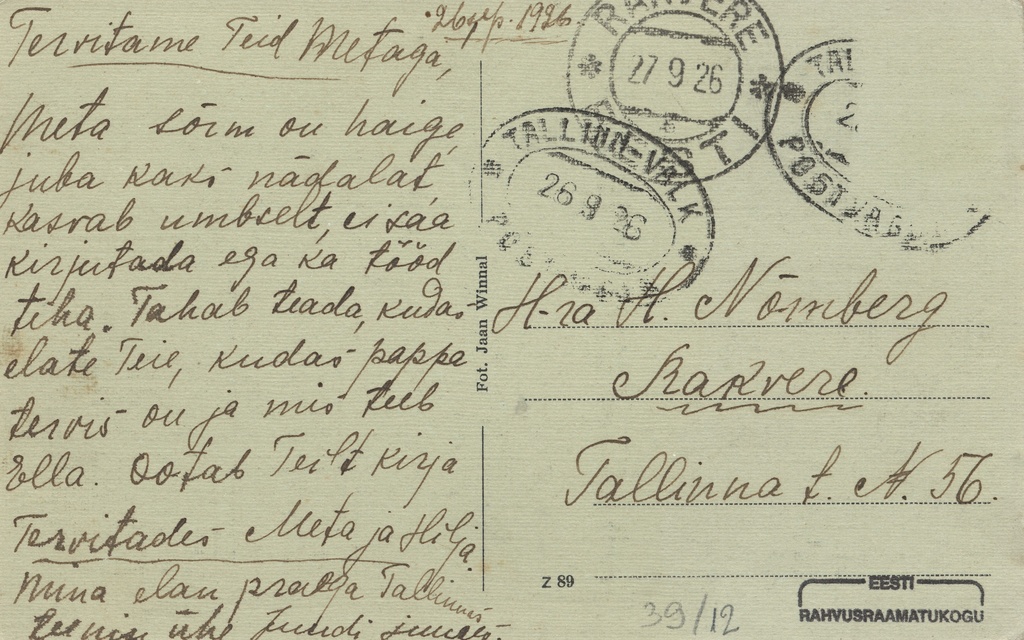 26 IX. 1926
Tervitame Teid Metaga,
Meta sõrm on haige,
juba kaks nädalat
kasvab umbselt, ei saa
kirjutada ega ka tööd
teha. Tahab teada, kudas
elate Teie, kudas pappa
tervis on ja mis teeb
Ella. Ootab Teilt kirja
Tervitades Meta ja Hilja
Mina elan praega Tallinnas
teenin ühe juudi juures.
Fot. Jaan Winnal
RAKVERE
27 9 26
TALLINN-VALK
26 9 26
TAL
POSTVAGU
H-ra H. Nõmberg
Rakvere.
Tallinna t. N. 56.
Z 89
39/12
EESTI
RAHVUSRAAMATUKOGU